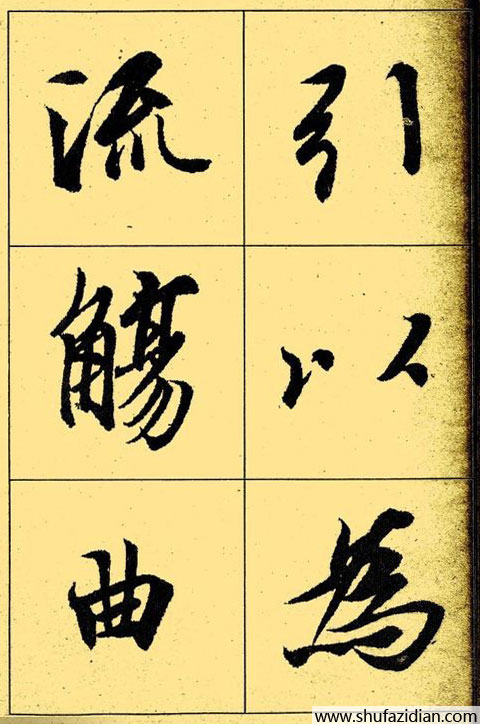 引以為
流觴曲
www.shufazidian.com